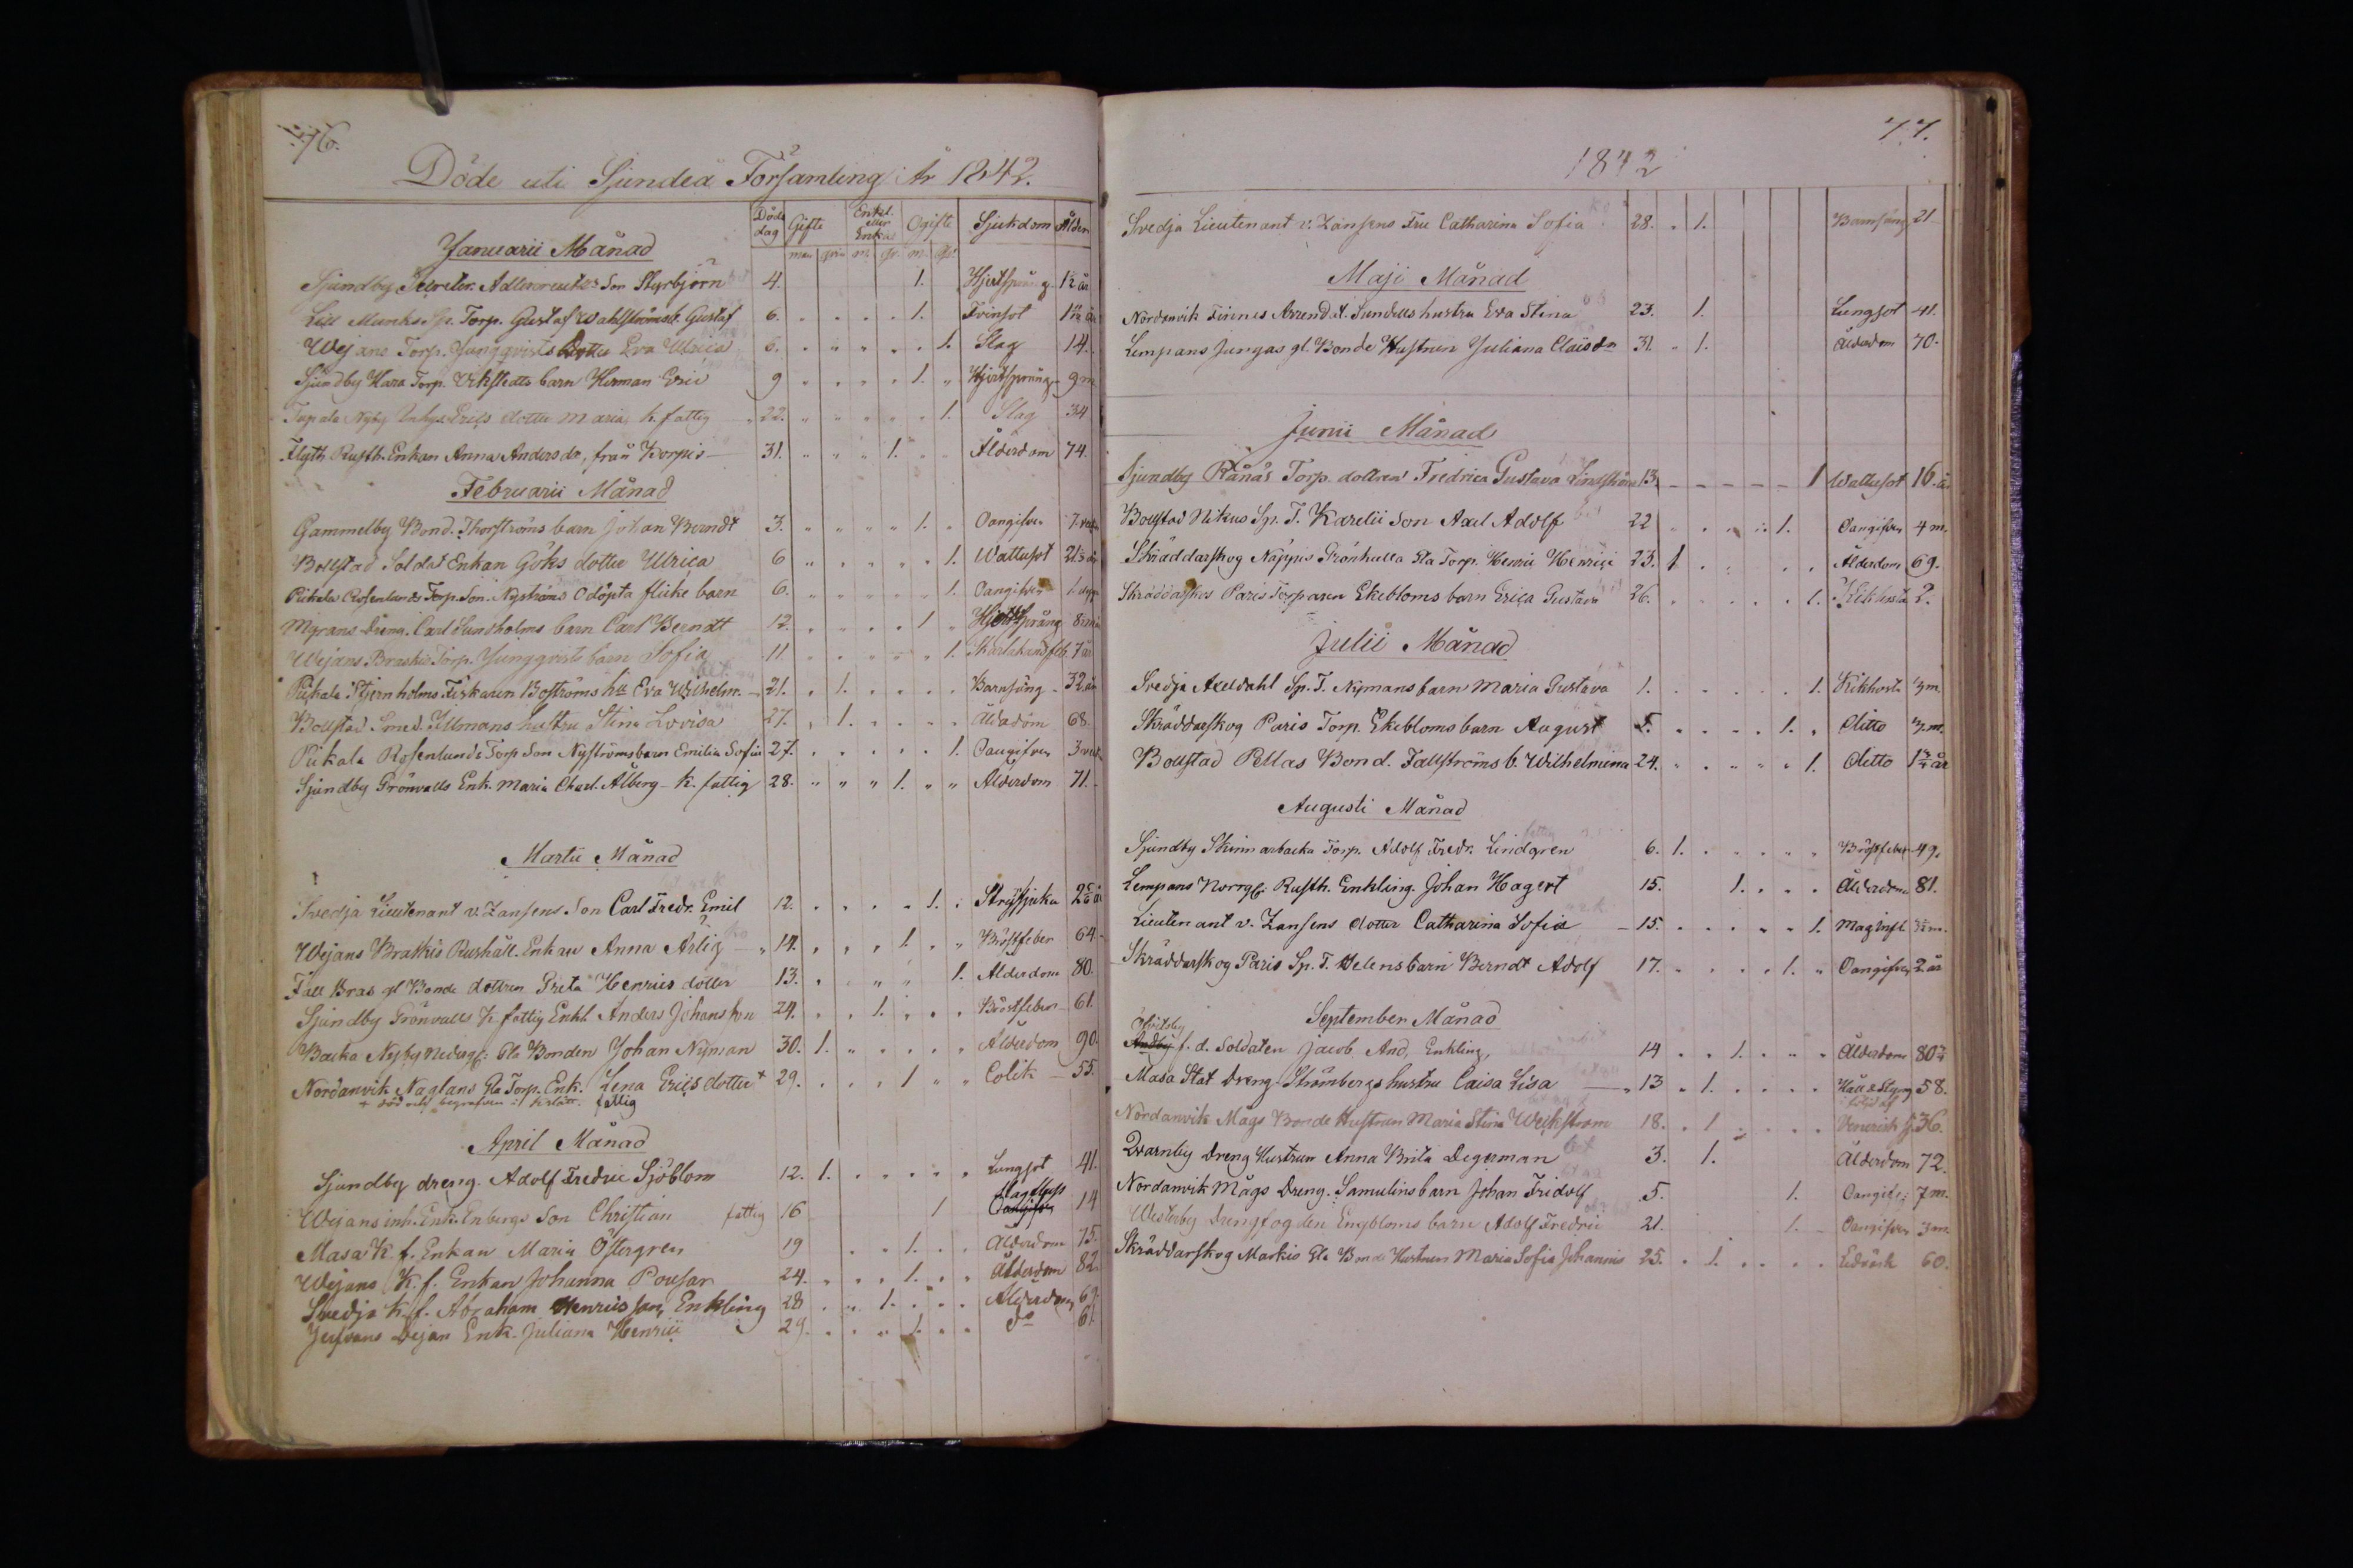 76.
Döde uti Sjundeå Församling År 1842.
Döds dag Gifte Enkel. eller Enkor Ogifte Sjukdom Ålder
man qvin m. qv. m. qv.
Januarii Månad
Sjundby Adlercreutzs Son Styrbjörn 4. 1. Hjertsprång 1½ år
Lill Munks Sp. Torp. Gustaf Wahlströms b. Gustaf 6. 1. Tvinsot
Wejans Torp. Jungqvists Dotter Eva Ulrica 6. 1. Slag 14.
Sjundby Hara Torp. Ekstedts barn Herman Eric 9 1. Hjertsprång 9 m
Nyby Erics dotter Maria, k. fattig 22. 1. Slag 34
Flyth Rusth. Enkan Anna Anders dr, från Korpis 31. 1. Ålderdom 74.
Februarii Månad
Gammelby Bond. Thorströms barn Johan Berndt 3. 1. Oangifven
Bollstad Soldat Enkan Göks dotter Ulrica 6 1. Wattusot
Pikala Rosenlunds Torp. Son. Nyströms Odöpta flicke barn 6. 1. Oangifven
Myrans Dreng. Carl Sundholms barn Carl Berndt 12. 1 Hjertsprång
Wejans Braskis Torp. Jungqvists barn Sofia 11. 1. Skarlakansfeb. 7 år
Pikala Stjernholms Fiskaren Boströms hu Eva Wilhelm. 21. 1. Barnsäng 32 år
Bollstad Smed. Illmans hustru Stina Lovisa 27. 1. Ålderdom 68.
Pikala Rosenlunds Torp Son Nyströms barn Emilia Sofia 27. 1. Oangifven
Sjundby Grönvalls Enk. Maria Charl. Ålberg k. fattig 28. 1. Ålderdom 71.
Martii Månad
Svedja Lieutenant v. Zansens Son Carl Fredr. Emil 12. 1. Strypsjuka
Wejans Braskis Rushåll. Enkan Anna Ärlig 14. 1. Bröstfeber 64
Fall Bras gl Bonde dottren Greta Henrics dotter 13. 1. Ålderdom 80.
Sjundby Grönvalls k. fattig Enkl. Anders Johansson 24. 1. Bröstfeber 61.
Backa Nyby Nedergd: Gla Bonden Johan Nyman 30. 1. Ålderdom 90.
Nordanvik Naglans Gla Torp. Enk. Lena Erics dotter + 29. 1 Colik 55.
+ död och begrafven i Kyrkslätt. fattig
April Månad
Sjundby dreng. Adolf Fredric Sjöblom 12. 1. Lungsot 41.
Wejans inh. Enk. Enbergs Son Christian fattig 16 1 14
Masa K. f. Enkan Maria Östergren 19 1. Ålderdom 75.
Wejans K. f. Enkan Johanna Pousar 24. 1. Ålderdom 82
Svedja K. f. Abraham Henricsson, Enkling 28 1. Ålderdom 69.
Dejan Enk. Juliana Henrici 29. 1. do 61.
77.
1842
Svedja Lieutenant v. Zansens Fru Catharina Sofia 28. 1. Barnsäng 21
Maji Månad
Nordanvik Finnes Arrendat. Sundells hustru Eva Stina 23. 1. Lungsot 41.
Lempans Jungas gl. Bonde Hustrun Juliana Claisdr 31. 1. Ålderdom 70.
Junii Månad
Sjundby Rånäs Torp. dottren Fredrica Gustava Lindström 13. 1 Wattusot 16. år
Bollstad Nikus Sp. T. Karelii Son Axel Adolf 22 1. Oangifven 4 m.
Skräddarskog Näppis Grönkulla Gla Torp. Henric Henrici 23. 1. Ålderdom 69.
Skräddarskog Paris Torparen Ekebloms barn Erica Gustava 26. 1. Kikhosta 2.
Julii Månad
Svedja Axeldahl Sp. T. Nymans barn Maria Gustava 1. 1. Kikhosta
Skräddarskog Paris Torp. Ekebloms barn August 5. 1. Ditto
Bollstad Pellas Bond. Fallströms b. Wilhelmina 24. 1. Ditto
Augusti Månad
Sjundby Skinnarbacka Torp. Adolf Fredr. Lindgren 6. 1. Bröstfeber 49.
Lempans Norrgd: Rusth. Enkling. Johan Hagert 15. 1. Ålderdom 81.
Lieutenant v. Zansens dotter Catharina Sofia 15. 1. Mag Infl.
Skräddarskog Paris Sp. T. Helens barn Berndt Adolf 17. 1. Oangifven 2 år
September Månad
f. d. Soldaten Jacob And, Enkling, 14 1. Ålderdom
Masa Stat Dreng Strömbergs hustru Caisa Lisa 13 1. Håll & Styng 58.
Nordanvik Mågs Bonde Hustrun Maria Stina Weckström 18. 1 följd af Venerisk sj. 36.
Qvarnby Dreng Hustrun Anna Brita Degerman 3. 1. Ålderdom 72.
Nordanvik Mågs Dreng. Samulins barn Johan Fridolf 5. 1. Oangifv: 7 m.
Westerby Drengfogden Engbloms barn Adolf Fredric 21. 1. Oangifven 3 m.
Skräddarskog Markis Gla Bonde Hustrun Maria Sofia Johannis 25. 1. 60.